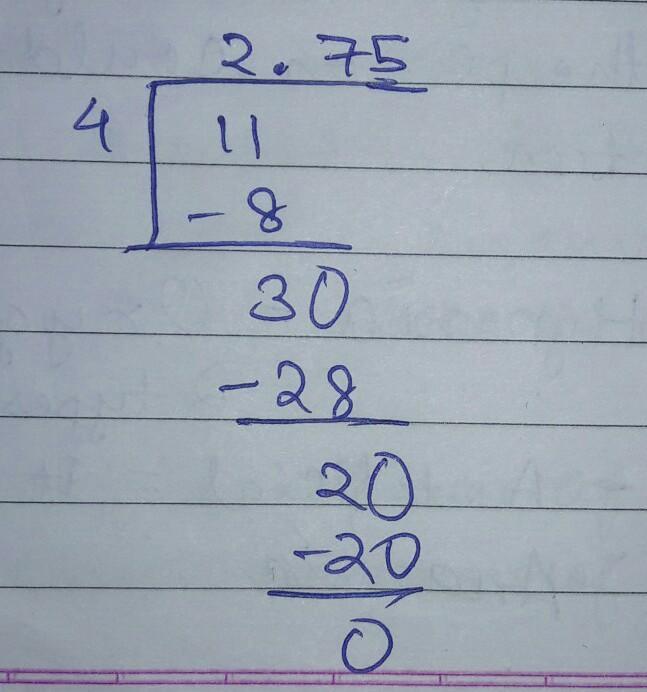 2.75
4 11
-8
30
-28
20
-20
0